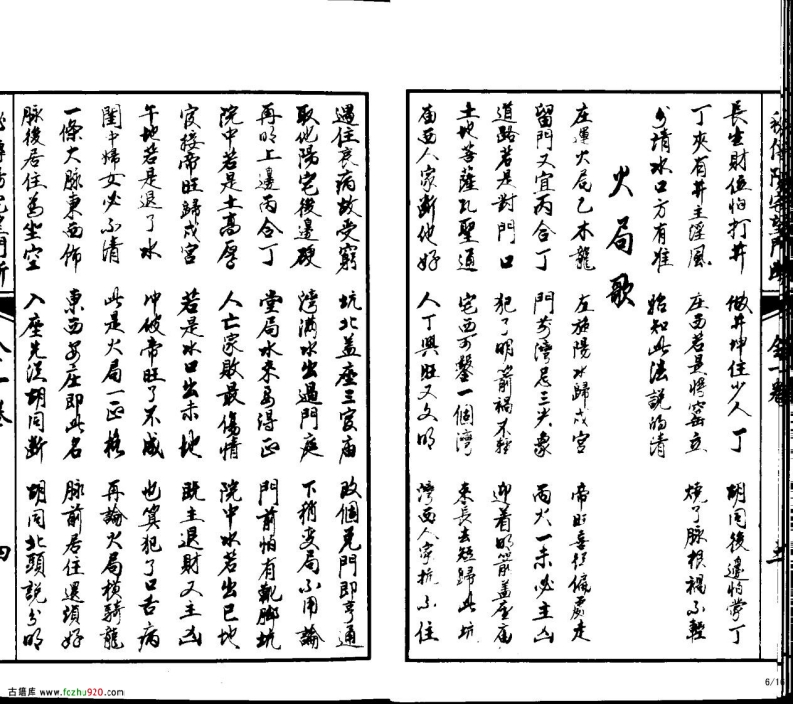 長生財位怕打井 做井坤住少人丁 胡同後邊怕掌丁
丁夾有井主淫風 庄西若是将窑立 燒了脉根禍不輕
分清水口方有准 始知此法説的清
火局歌
庄運火局乙木龍 左旋陽水歸戌宮 帝旺喜行偏處走
留門又宜丙合丁 門前灣尼三尖象 丙火一未必主凶
道路若是對門口 犯了明箭禍不輕 迎着明箭盖座庙
土地菩薩孔聖通 宅西可鑿一個灣 來長去短歸此坑
庙西人家断他好 人丁興旺又文明 灣西人家抗不住
遇住衰病故受窮 坑北盖座三官庙 改個克門即亨通
取他陽宅後邊硬 灣滿水出過門庭 下稍变局不用論
再明上邊丙合丁 堂局水來為得正 門前怕有靴脚坑
院中若是土高厚 人亡家敗最傷情 院中水若出巳地
官接帝旺歸戌宮 若是水口出未地 既主退財又主凶
午地若是退了水 冲破帝旺了不成 也算犯了口舌病
閨中婦女必不清 此是火局一正格 再論火局横騎龍
一條大脉東西佈 東西安庄即此名 脉前居住還須好
脉後居住為坐空 入座先從胡同断 胡同北頭説分明
四
古籍库 www.fczhu920.com
6/16